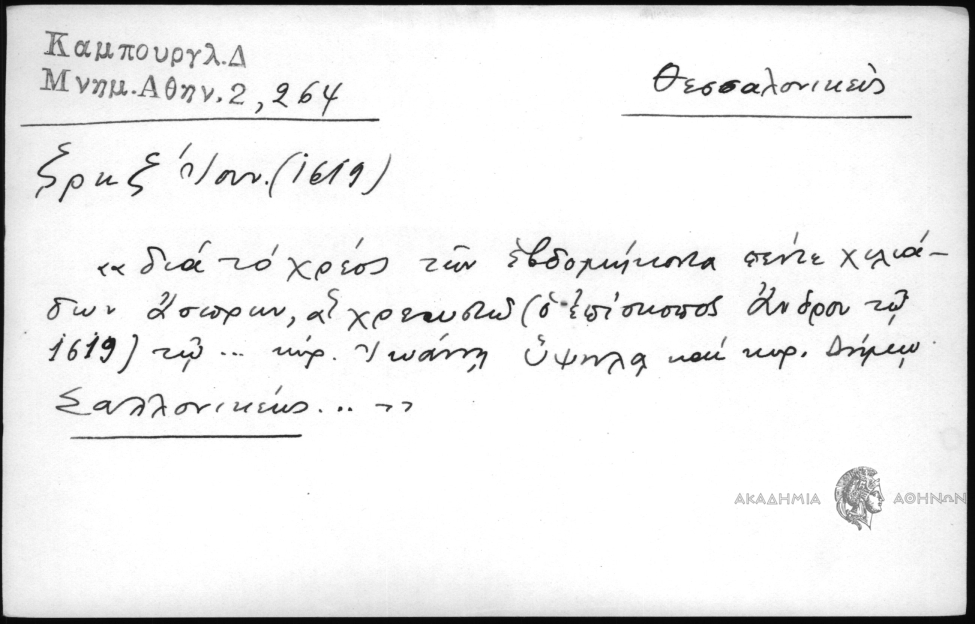 Καμπουργλ.Δ
Μνημ.Αθην.2, 264
Θεσσαλονικεὺς
ζρκζ Ἰουν. (1619)
«διά τό χρέος τῶν ἑβδομήκοντα πέντε χιλιά-
δων ἄσπρων, (ὁ ἐπίσκοπος Ἄνδρου τῷ
1619) τῷ ... κύρ. Ἰωάννῃ Ὑψηλᾷ καί κυρ. Δήμῳ
Σαλλονικεύς... »
ΑΚΑΔΗΜΙΑ ΑΘΗΝΩΝ